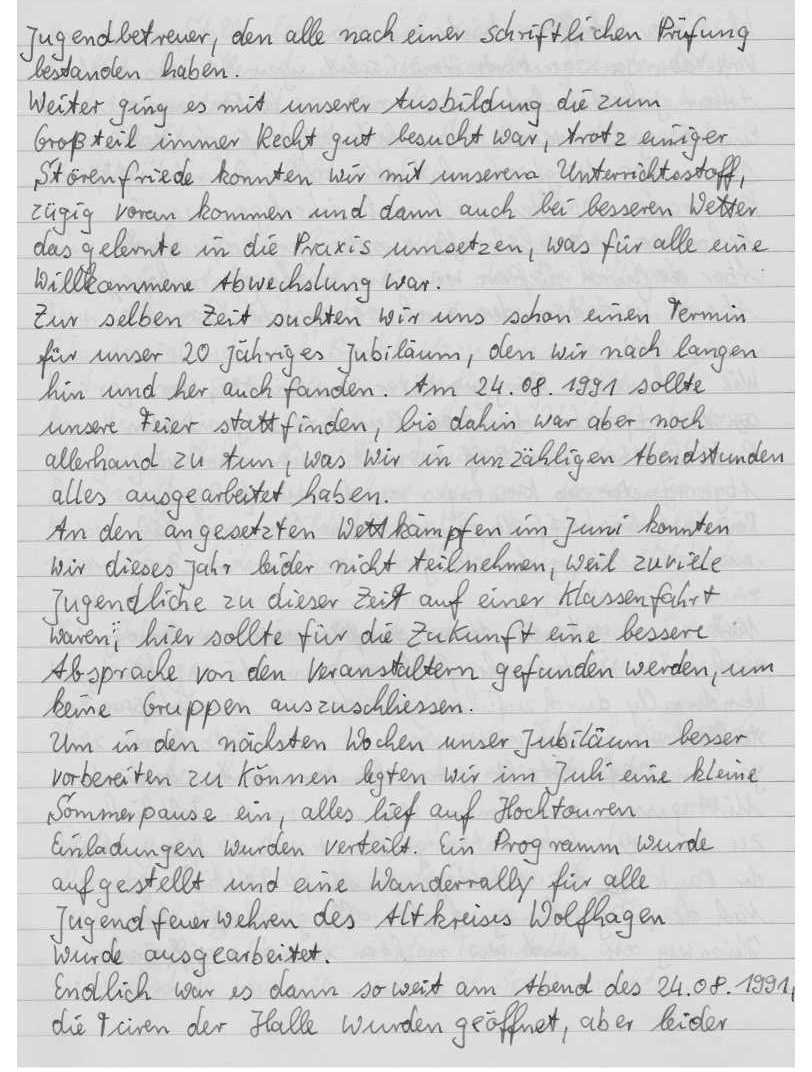 Jugendbetreuer, den alle nach einer schriftlichen Prüfung
bestanden haben.
Weiter ging es mit unserer Ausbildung die zum
Großteil immer Recht gut besucht war, trotz einiger
Störenfriede konnten wir mit unserem Unterrichtsstoff,
zügig voran kommen und dann auch bei besseren Wetter
das gelernte in die Praxis umsetzen, was für alle eine
Willkommene Abwechslung war.
Zur selben Zeit suchten wir uns schon einen Termin
für unser 20 Jähriges Jubiläum, den wir nach langen
hin und her auch fanden. Am 24.08.1991 sollte
unsere Feier stattfinden, bis dahin war aber noch
allerhand zu tun, was wir in unzähligen Abendstunden
alles ausgearbeitet haben.
An den angesetzten Wettkämpfen im Juni konnten
wir dieses Jahr leider nicht teilnehmen, weil zuviele
Jugendliche zu dieser Zeit auf einer Klassenfahrt
waren, hier sollte für die Zukunft eine bessere
Absprache von den Veranstaltern gefunden werden, um
keine Gruppen auszuschliessen.
Um in den nächsten Wochen unser Jubiläum besser
vorbereiten zu können legten wir im Juli eine kleine
Sommerpause ein, alles lief auf Hochtouren
Einladungen wurden verteilt. Ein Programm wurde
aufgestellt und eine Wanderrally für alle
Jugendfeuerwehren des Altkreises Wolfhagen
wurde ausgearbeitet.
Endlich war es dann soweit am Abend des 24.08.1991,
die Türen der Halle wurden geöffnet, aber leider